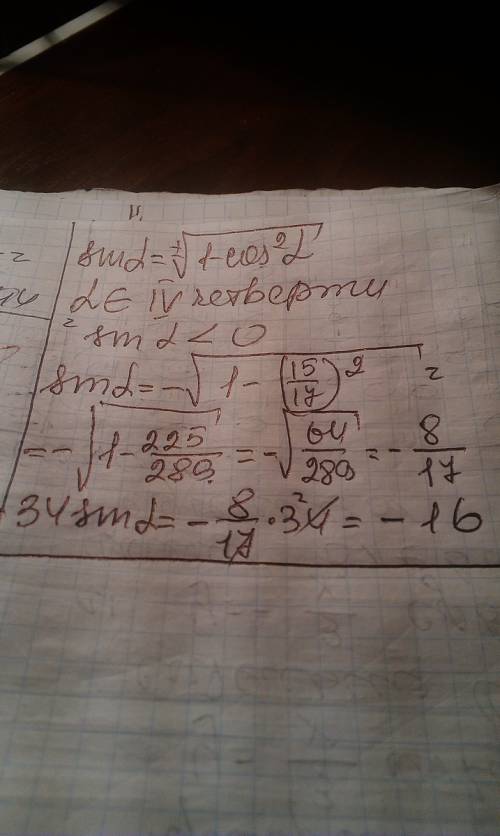 sin α = ±√(1-cos²α)
α ∈ IV четверти
sin α < 0
sin α = -√(1-(15/17)²) =
= -√(1-225/289) = -√(64/289) = -8/17
34 sin α = -8/17 · 34 2 = -16